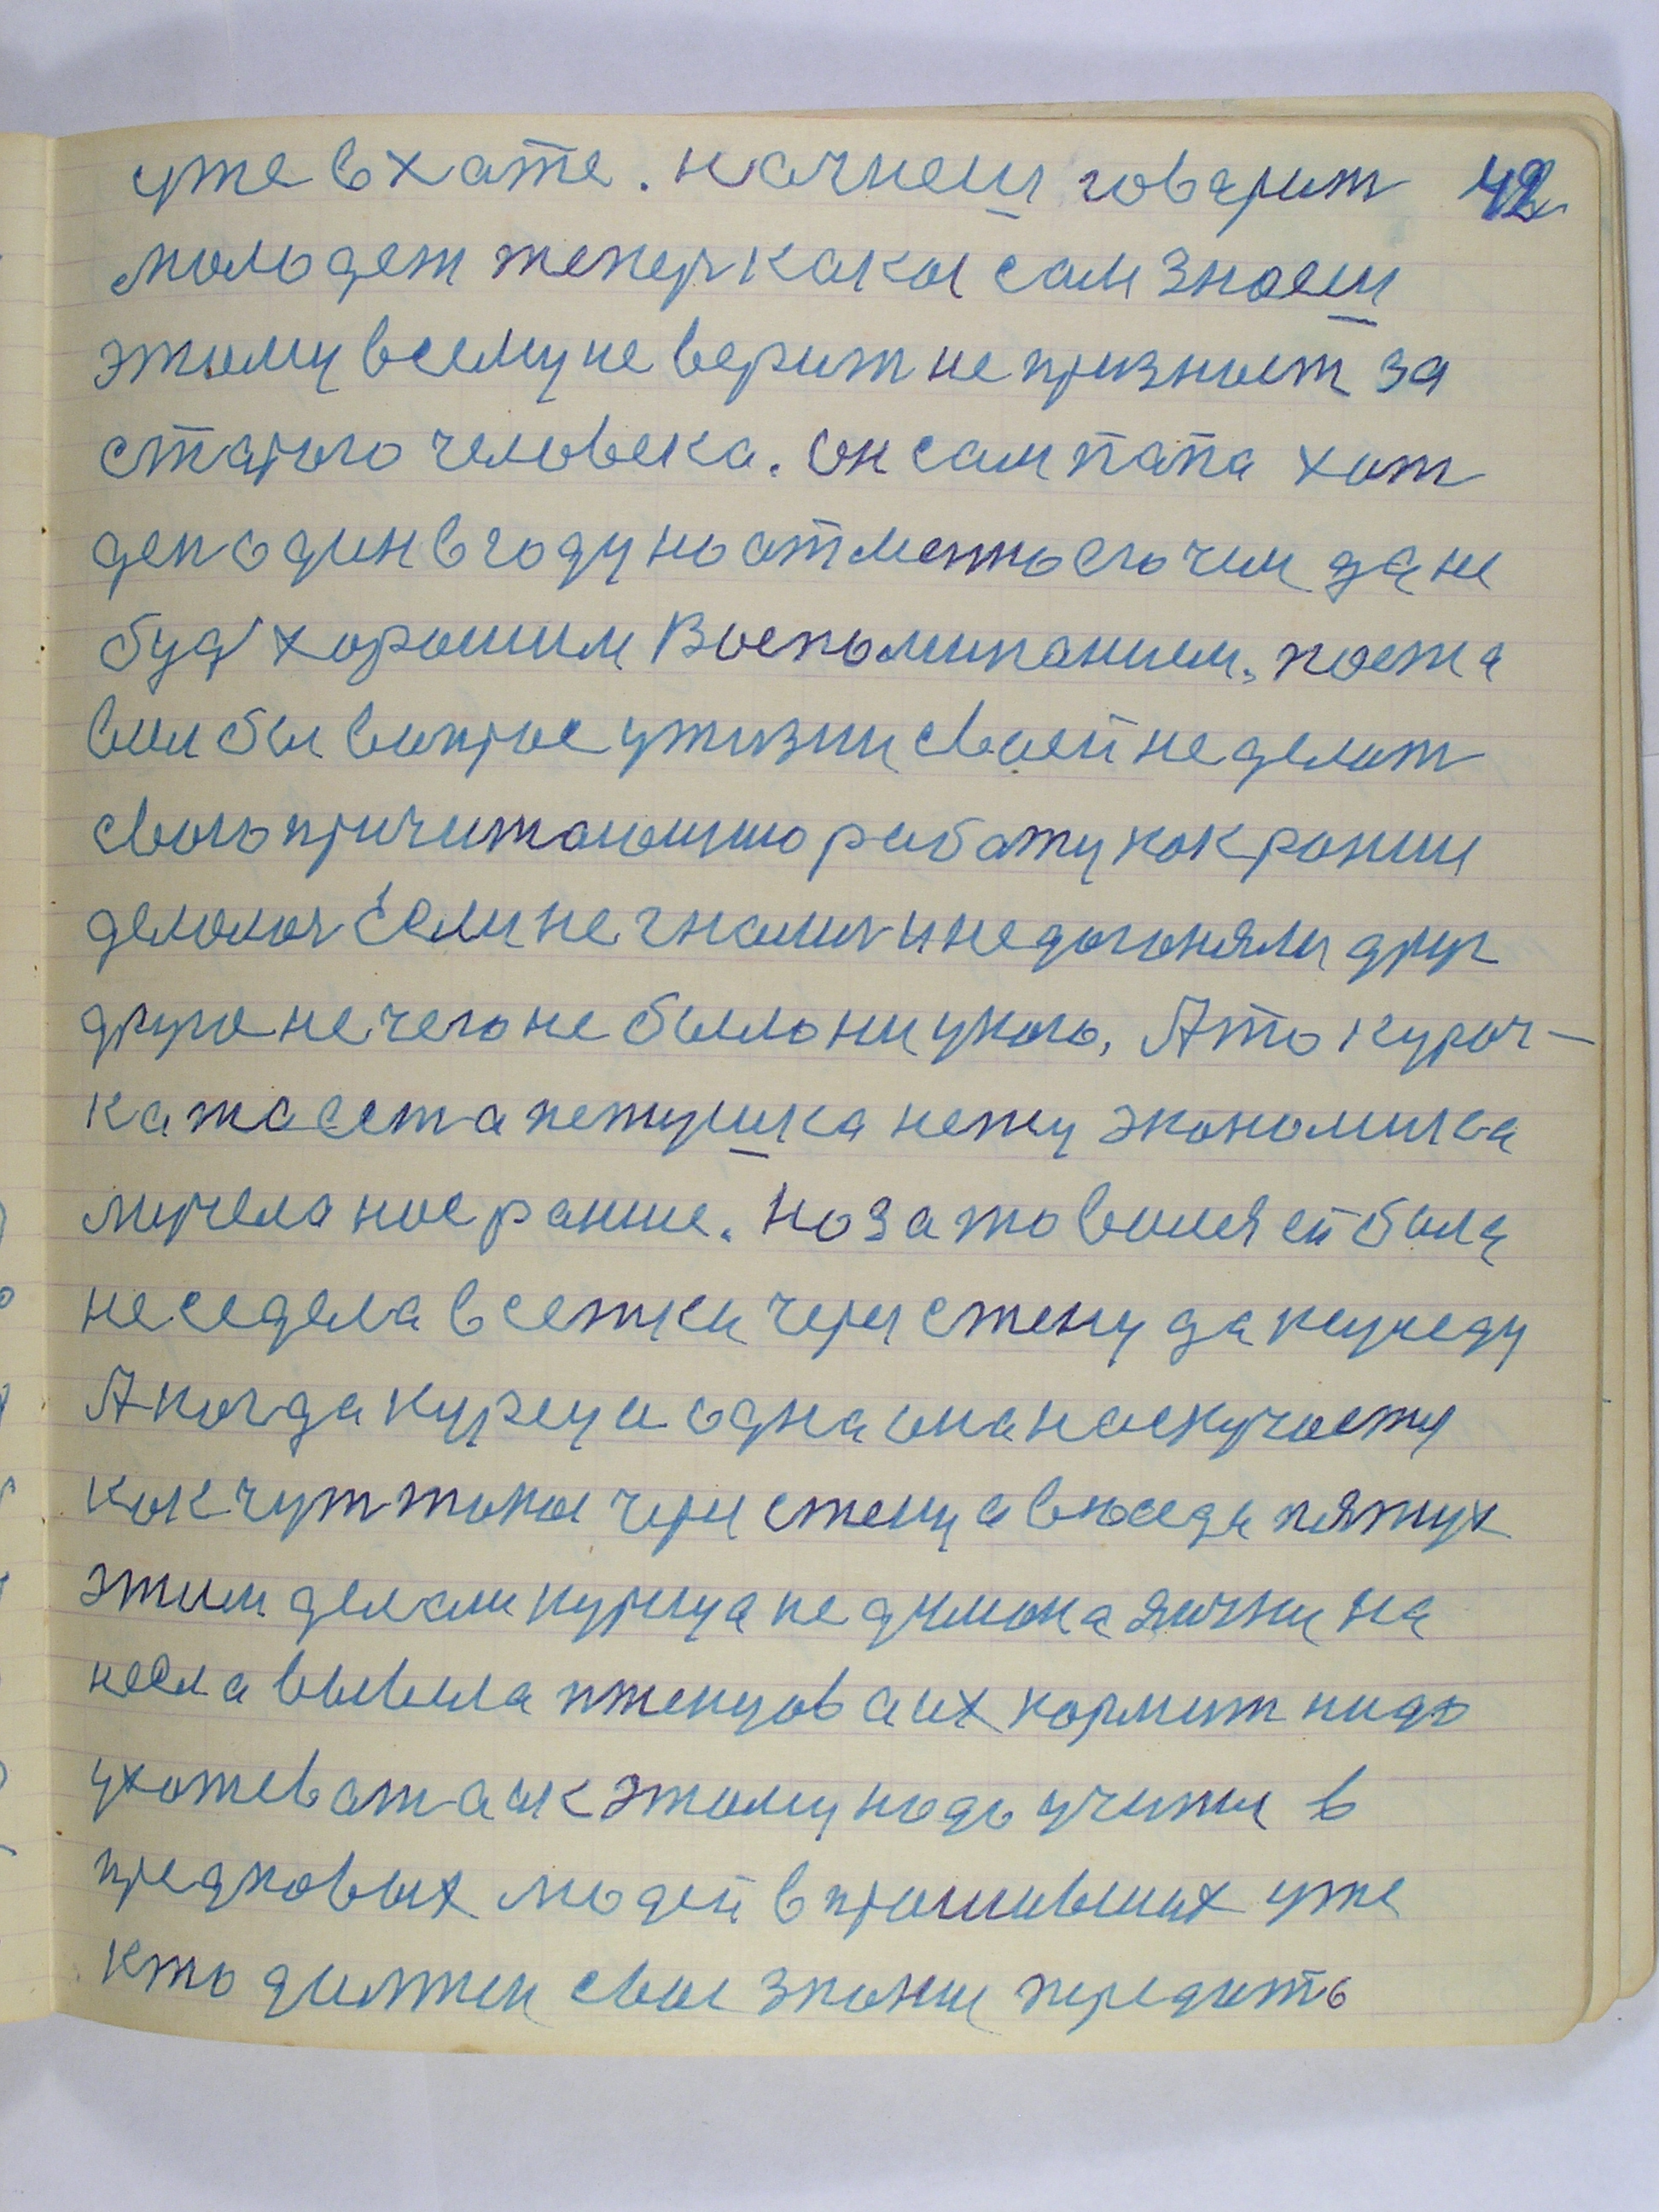 уже в хате. начнеш говарит 42
мольдеж тепер кака сам знаеш
этому всему не верит не признает за
старого человека. он сам папа хот
ден один в году но отметь его чем да не
буд хорошим Воспоминанием. поста
вил бы вопрос у жизни своей не делат
свою причитающию работу как раньш
делалос Если не гналис и не догоняли друг
друга не чего не было ни у кого, А то куроч-
ка та ест а петушка нету экономика
мерела ное ранше. но зато воля ей была
не седела в сетки чери стену да к суседу
А когда курица одна она наскучаетя
как чут тока чери стену а в суседа пятух
этим делам курица не думана яички на
несла вывела птенцов а их кормит надо
ухажеват а ак этому надо учитя в
предковых людей в прошивших уже
кто должен свои знание передать